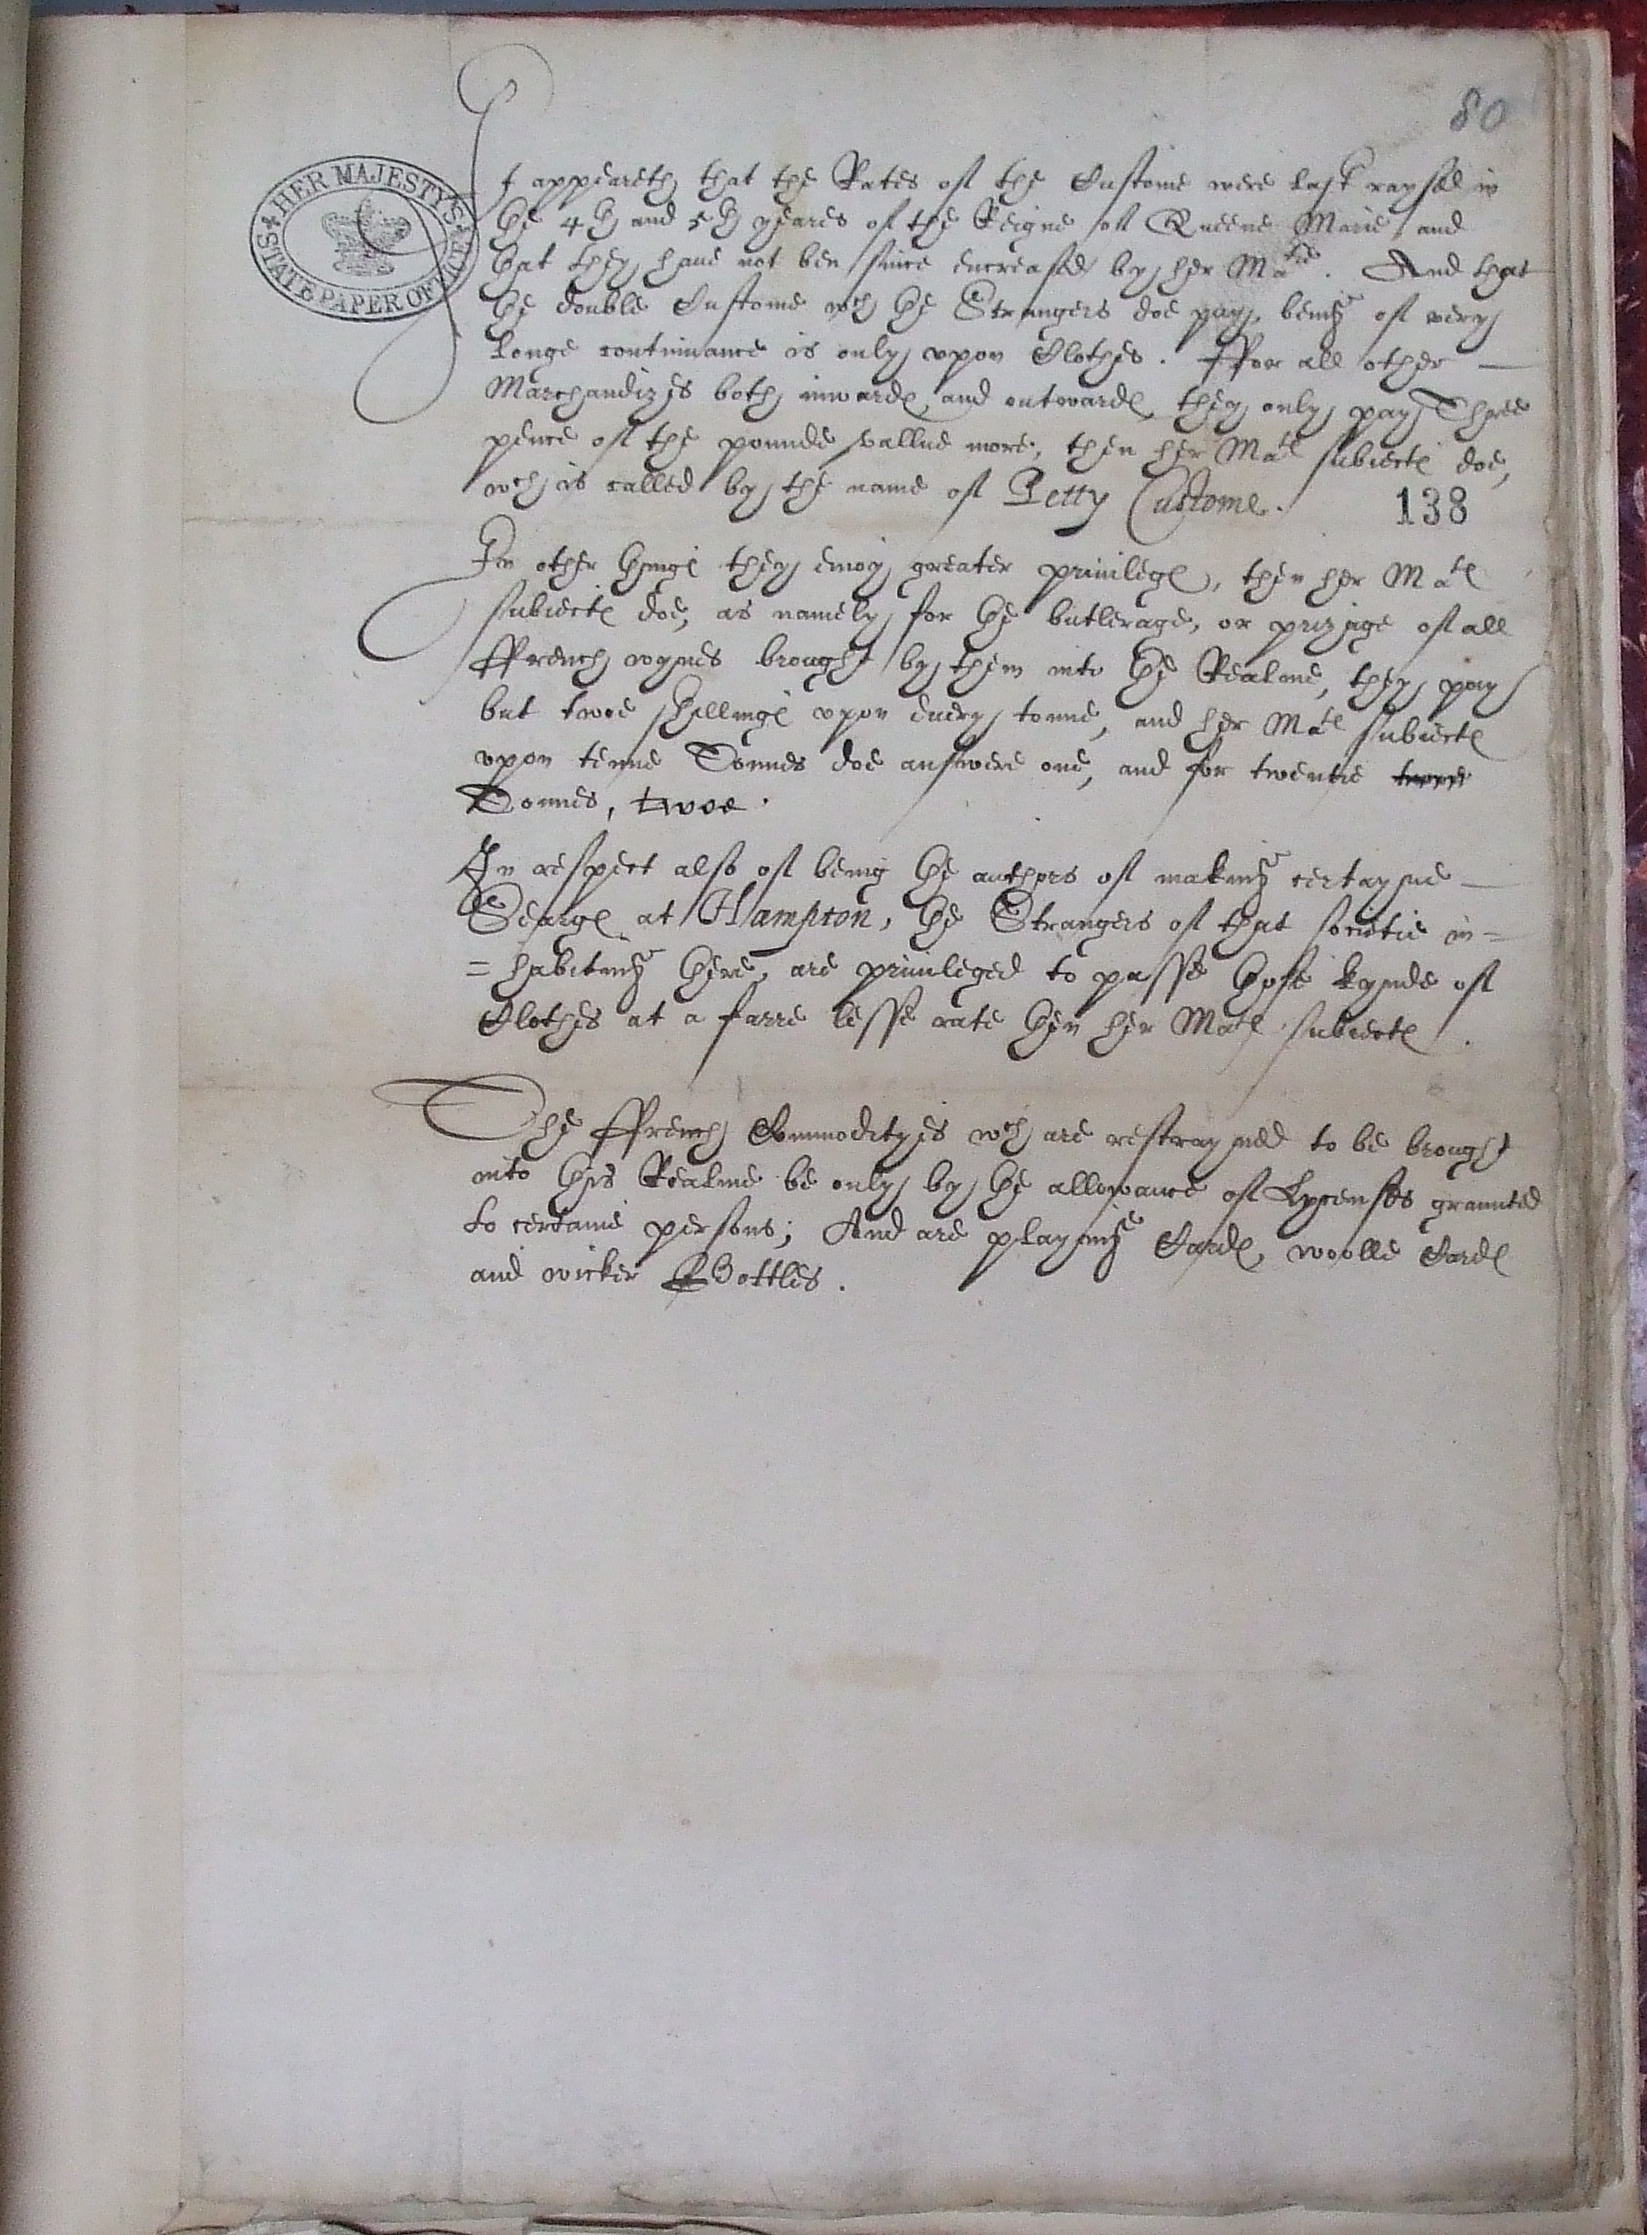 80
HER MAJESTY'S STATE PAPER OFFICE
It appeareth that the Rates of the Custome were last raysed in
the 4th and 5th yeares of the Reigne of Queene Marie and
that they haue not ben since encreased by her Matie. And that
the double Custome wch the Strangers doe pay, being of very
longe continuance is only vpon Clothes. ffor all other
Marchandizes both inwardes and outwardes they only pay Three
pence of the pounde vallue more, then her Mates subiectes doe,
wch is called by the name of Petty Custome.
138
In other thinges they enioy greater priuileges, then her Mates
subiectes doe, as namely for the butlerage, or prizage of all
ffrench wynes brought by them into the Realme, they pay
but twoe shillinges vpon euery tonne, and her Mates subiectes
vpon tenne Tonnes doe answere one, and for twentie
Tonnes, twoe.
In respect also of being the authors of making certayne
at Hampton, the Strangers of that societie in=
=habiting there, are priuileged to passe those kynde of
Clothes at a farre lesse rate then her Mates subiectes.
The ffrench Commodityes wch are restrayned to be brought
into this Realme be only by the allowance of Lycenses graunted
to certaine persons; And are playing Cardes, woolle Cardes
and wicker Bottles.